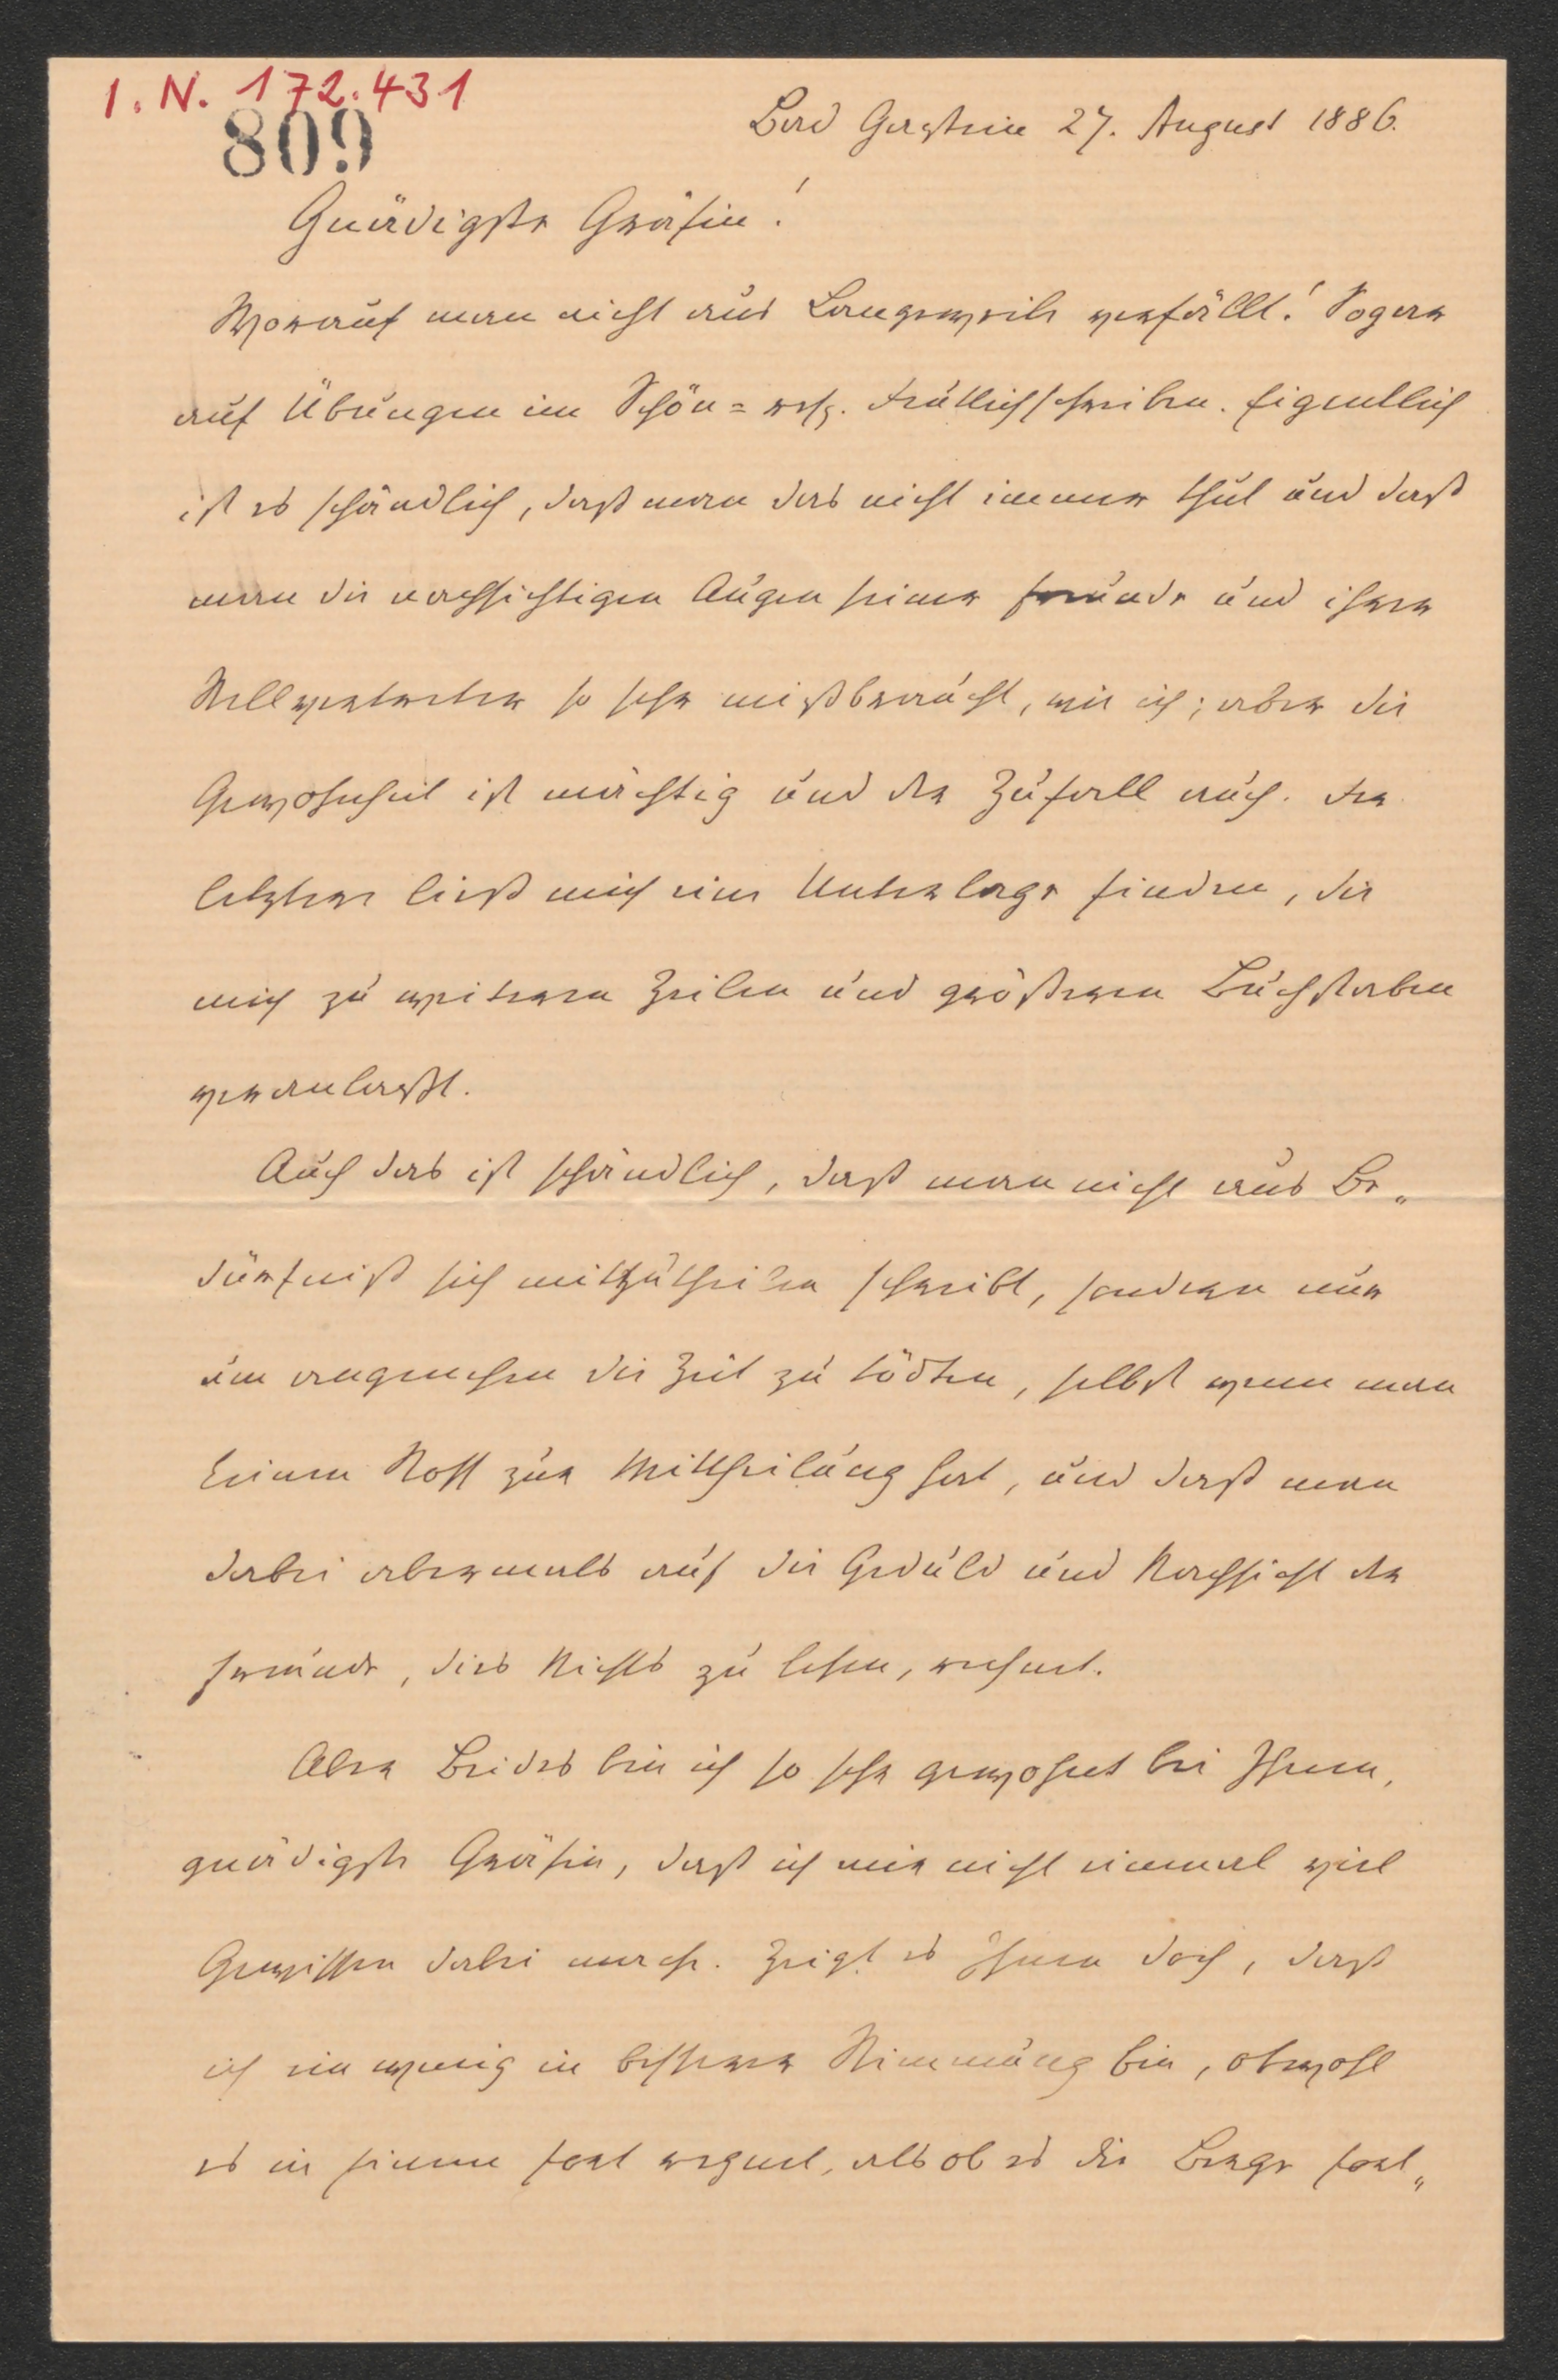 I. N. 172.431
809
Bad Gastein 27. August 1886.
Gnädigste Gräfin!
Worauf man nicht aus Langerweile verfällt! Sogar
auf Übungen im Schön= resp. Deutlichschreiben. Eigentlich
ist es schändlich, daß man das nicht immer thut und daß
man die nachsichtigen Augen seiner Freunde und ihrer
Stellvertreter so sehr mißbraucht, wie ich; aber die
Gewohnheit ist mächtig und der Zufall auch. Der
letztere ließ mich eine Unterlage finden, die
mich zu weiteren Zeilen und größeren Buchstaben
veranlaßt.
Auch das ist schändlich, daß man nicht aus Be„
dürfniß sich mitzutheilen schreibt, sondern nur
um angenehm die Zeit zu tödten, selbst wenn man
keinen Stoff zur Mittheilung hat, und daß man
dabei abermals auf die Geduld und Nachsicht der
Freunde, dies Nichts zu lesen, rechnet.
Aber Beides bin ich so sehr gewohnt bei Ihnen,
gnädigste Gräfin, daß ich mir nicht einmal viel
Gewissen dabei mache. Zeigt es Ihnen doch, daß
ich ein wenig in besserer Stimmung bin, obwohl
es in einem fort regnet, als ob es die Berge fort„